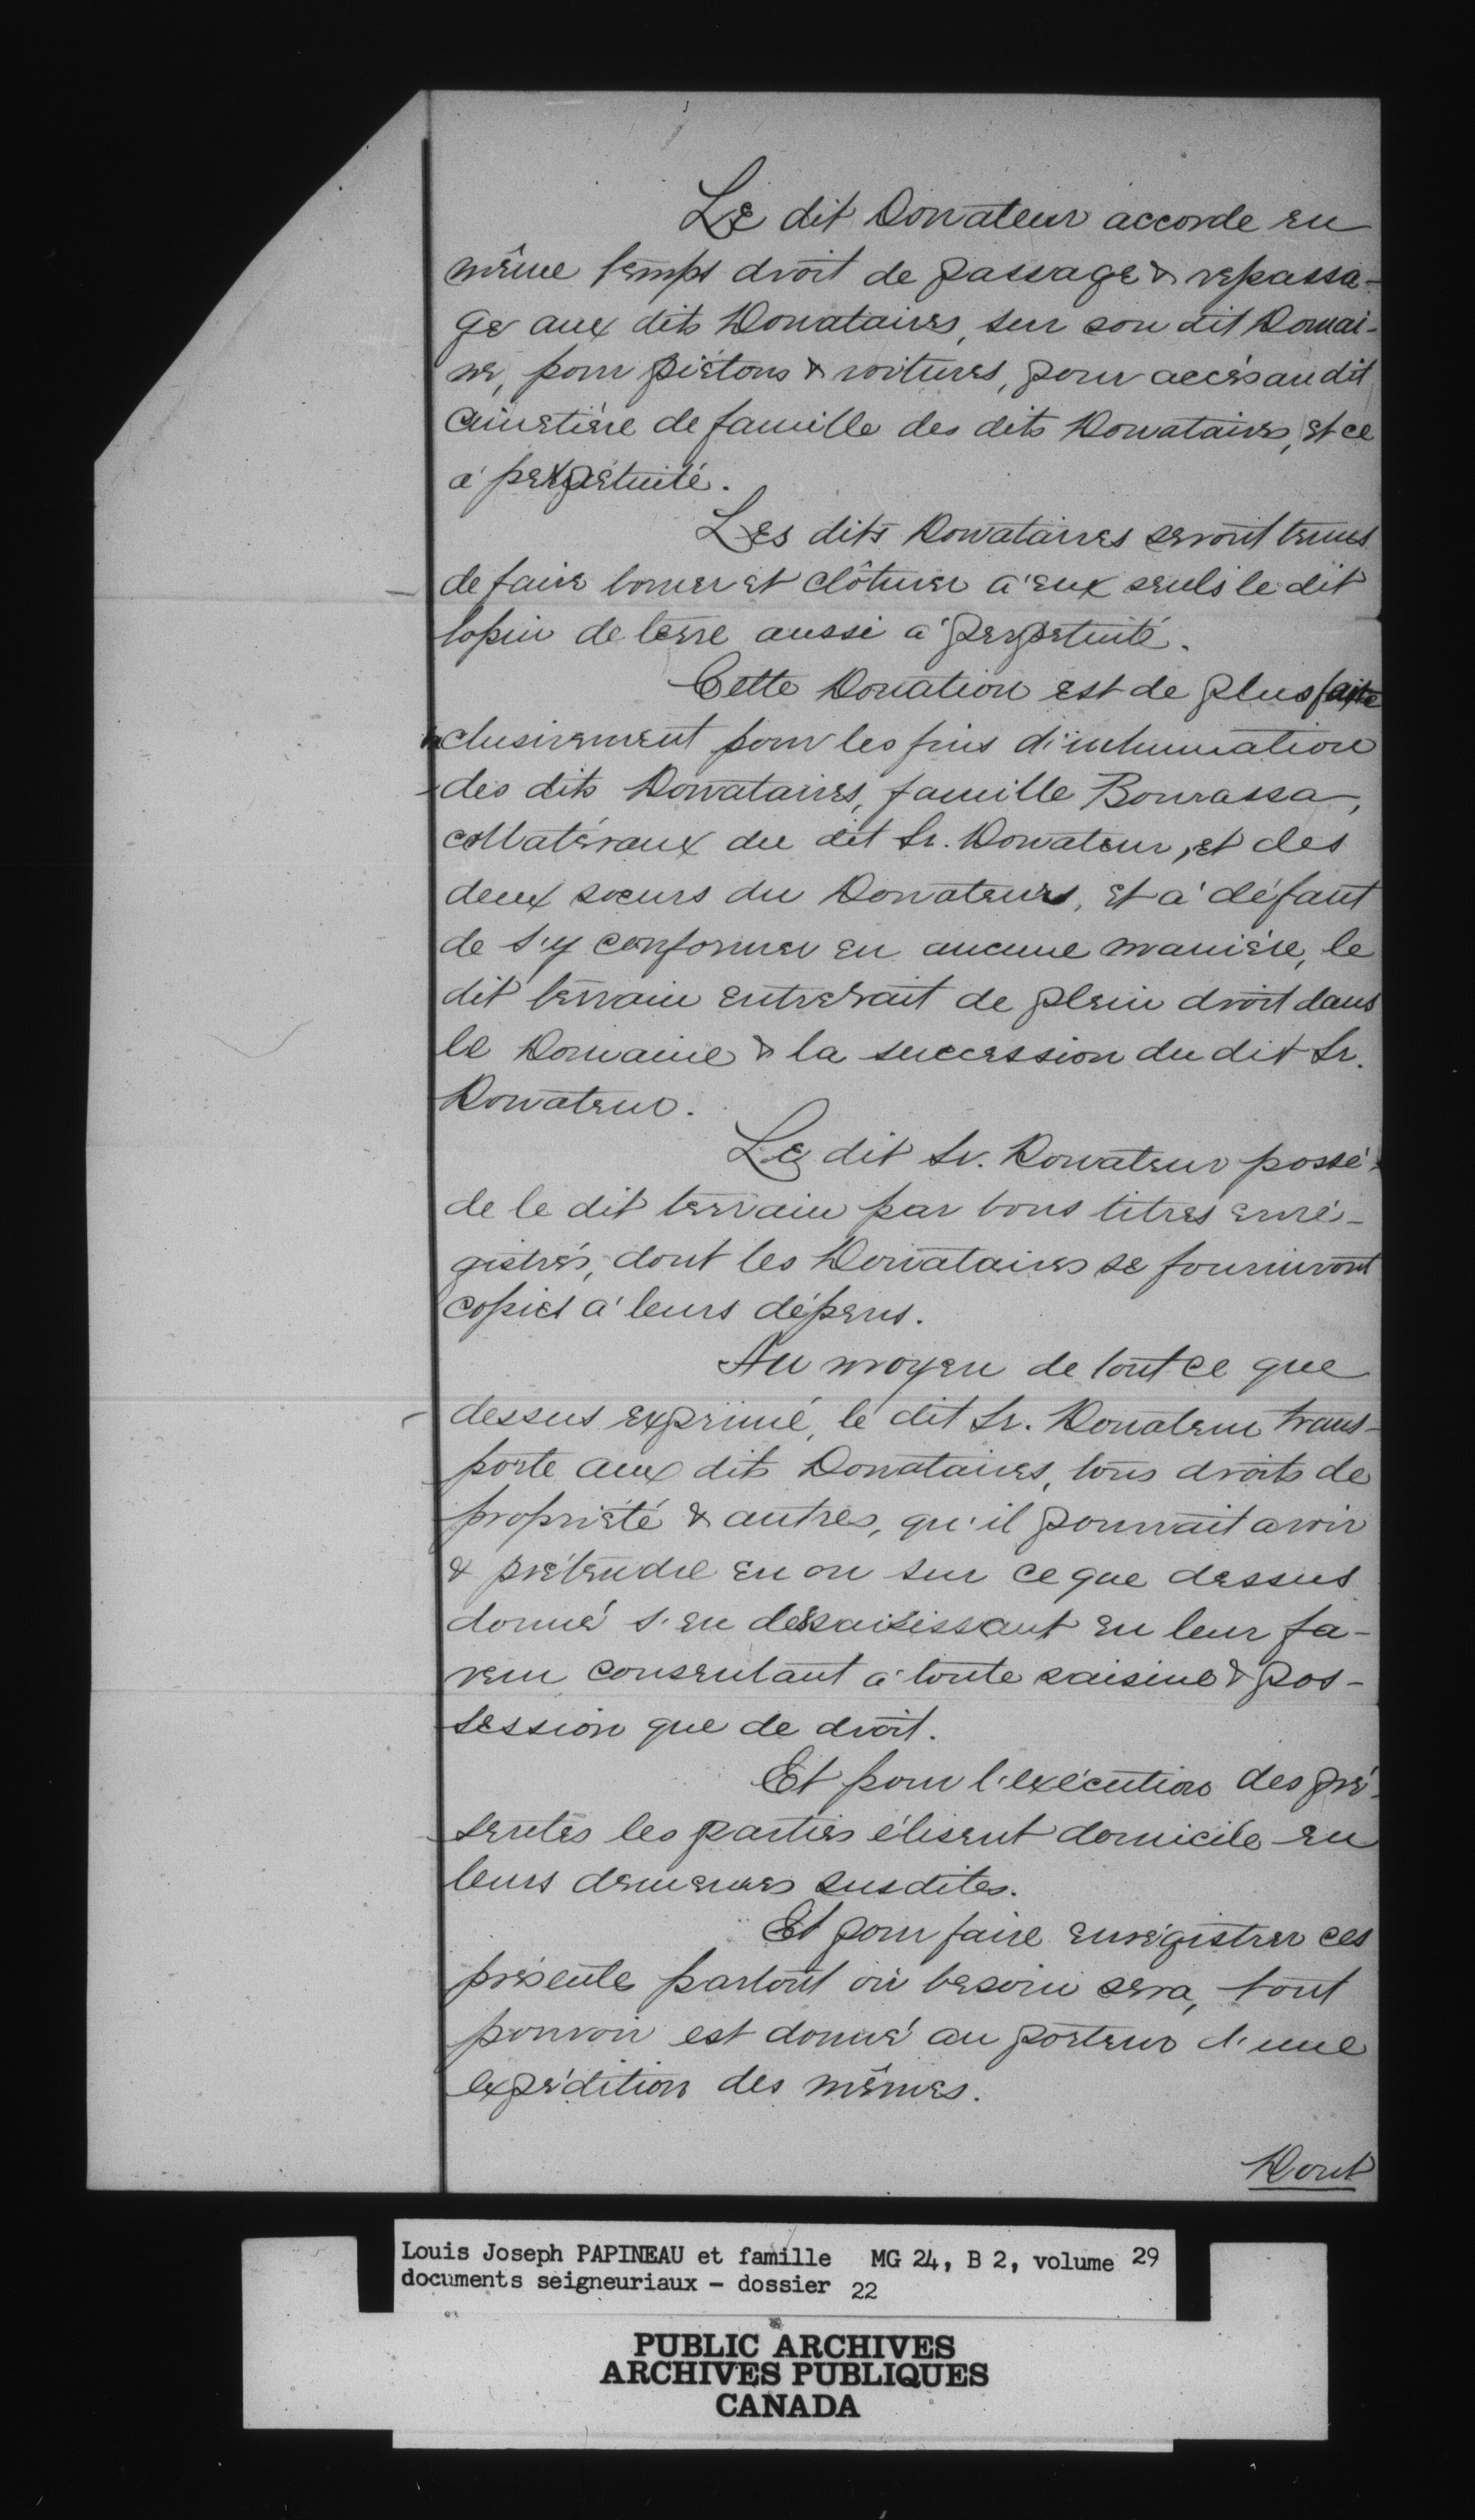 Le dit Donateur accorde en
même temps droit de passage & repassa-
ge aux dits Donataires, sur son dit Domai-
ne, pour piétons & voitures, pour accès au dit
cimetière de famille des dits Donataires, et ce
à perpétuité.
Les dits Donataires seront tenus
de faire borner et clôturer à eux seuls le dit
lopin de terre aussi à perpétuité.
Cette Donation est de plus faite
clusivement pour les fins d'inhumation
des dits Donataires, famille Bourassa,
collatéraux du dit Sr. Donateur, et des
deux soeurs du Donateurs, et à défaut
de s'y conformer en aucune manière, le
dit terrain entrerait de plein droit dans
le Domaine & la succession du dit Sr.
Donateur.
Le dit Sr. Donateur possè-
de le dit terrain par bons titres enré-
gistrés, dont les Donataires se fourniront
copies à leurs dépens.
Au moyen de tout ce que
dessus exprimé, le dit Sr. Donateur trans-
porte aux dits Donataires, tous droits de
propriété & autres, qu'il pourrait avoir
& prétendre en ou sur ce que dessus
donné s'en dessaisissant en leur fa-
veur consentant à toute saisine & pos-
session que de droit.
Et pour l'exécution des pré-
sentes les parties élisent domicile en
leurs demeures susdites.
Et pour faire enrégistrer ces
présente partout où besoin sera, tout
pouvoir est donné au porteur d'une
expédition des mêmes.
Dont
Louis Joseph PAPINEAU et famille MG 24, B 2, volume 29
documents seigneuriaux - dossier 22
PUBLIC ARCHIVES
ARCHIVES PUBLIQUES
CANADA